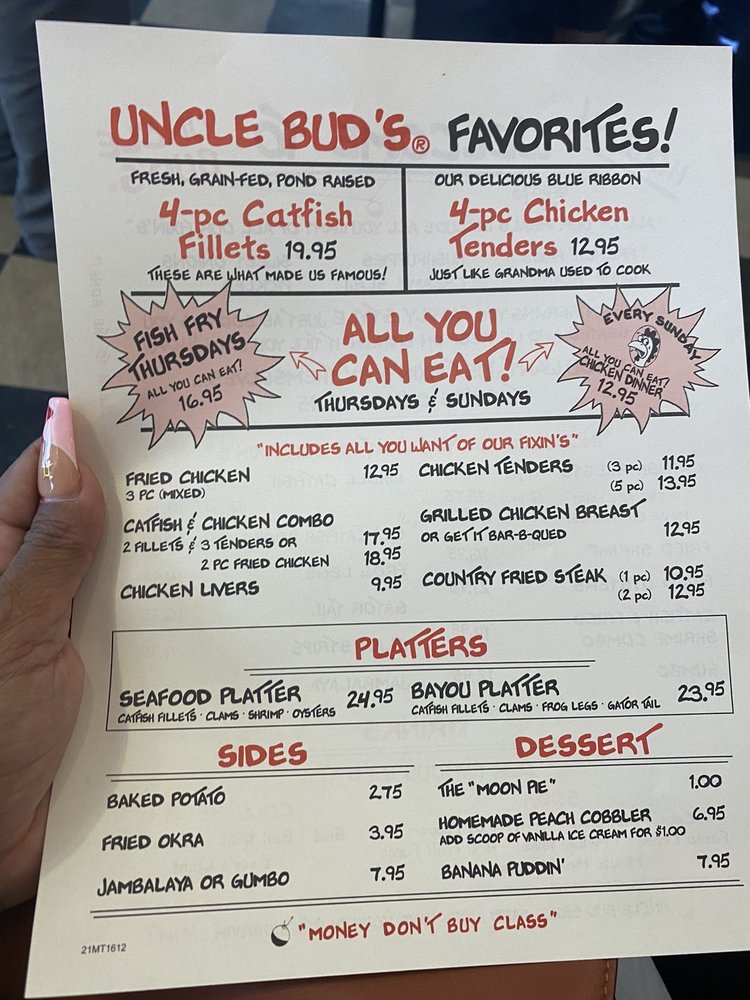 UNCLE BUD'S® FAVORITES!
FRESH, GRAIN-FED, POND RAISED
4-pc Catfish
Fillets 19.95
THESE ARE WHAT MADE US FAMOUS!
OUR DELICIOUS BLUE RIBBON
4-pc Chicken
Tenders 12.95
JUST LIKE GRANDMA USED TO COOK
FISH FRY
THURSDAYS
ALL YOU CAN EAT!
16.95
ALL YOU
CAN EAT!
THURSDAYS & SUNDAYS
EVERY SUNDAY
ALL YOU CAN EAT!
CHICKEN DINNER
12.95
"INCLUDES ALL YOU WANT OF OUR FIXIN'S"
FRIED CHICKEN 12.95
3 PC (MIXED)
CATFISH & CHICKEN COMBO
2 FILLETS & 3 TENDERS OR 17.95
2 PC FRIED CHICKEN 18.95
CHICKEN LIVERS 9.95
CHICKEN TENDERS (3 pc) 11.95
(5 pc) 13.95
GRILLED CHICKEN BREAST
OR GET IT BAR-B-QUED 12.95
COUNTRY FRIED STEAK (1 pc) 10.95
(2 pc) 12.95
PLATTERS
SEAFOOD PLATTER 24.95
CATFISH FILLETS · CLAMS · SHRIMP · OYSTERS
BAYOU PLATTER 23.95
CATFISH FILLETS · CLAMS · FROG LEGS · GATOR TAIL
SIDES
BAKED POTATO 2.75
FRIED OKRA 3.95
JAMBALAYA OR GUMBO 7.95
DESSERT
THE "MOON PIE" 1.00
HOMEMADE PEACH COBBLER 6.95
ADD SCOOP OF VANILLA ICE CREAM FOR $1.00
BANANA PUDDIN' 7.95
"MONEY DON'T BUY CLASS"
21MT1612